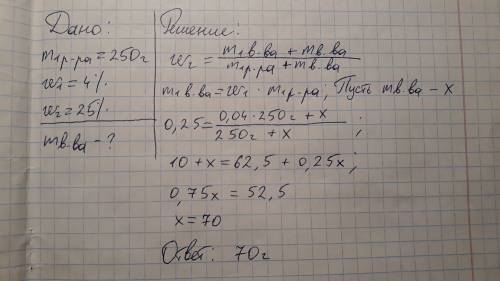 Дано:
m₁р-ра = 250г
w₁ = 4%
w₂ = 25%
mв-ва - ?
Решение:
w₂ = (m₁в-ва + mв-ва) / (m₁р-ра + mв-ва)
m₁в-ва = w₁ · m₁р-ра; Пусть mв-ва - x
0,25 = (0,04·250г + x) / (250г + x) ;
10 + x = 62,5 + 0,25x ;
0,75x = 52,5
x = 70
Ответ: 70г